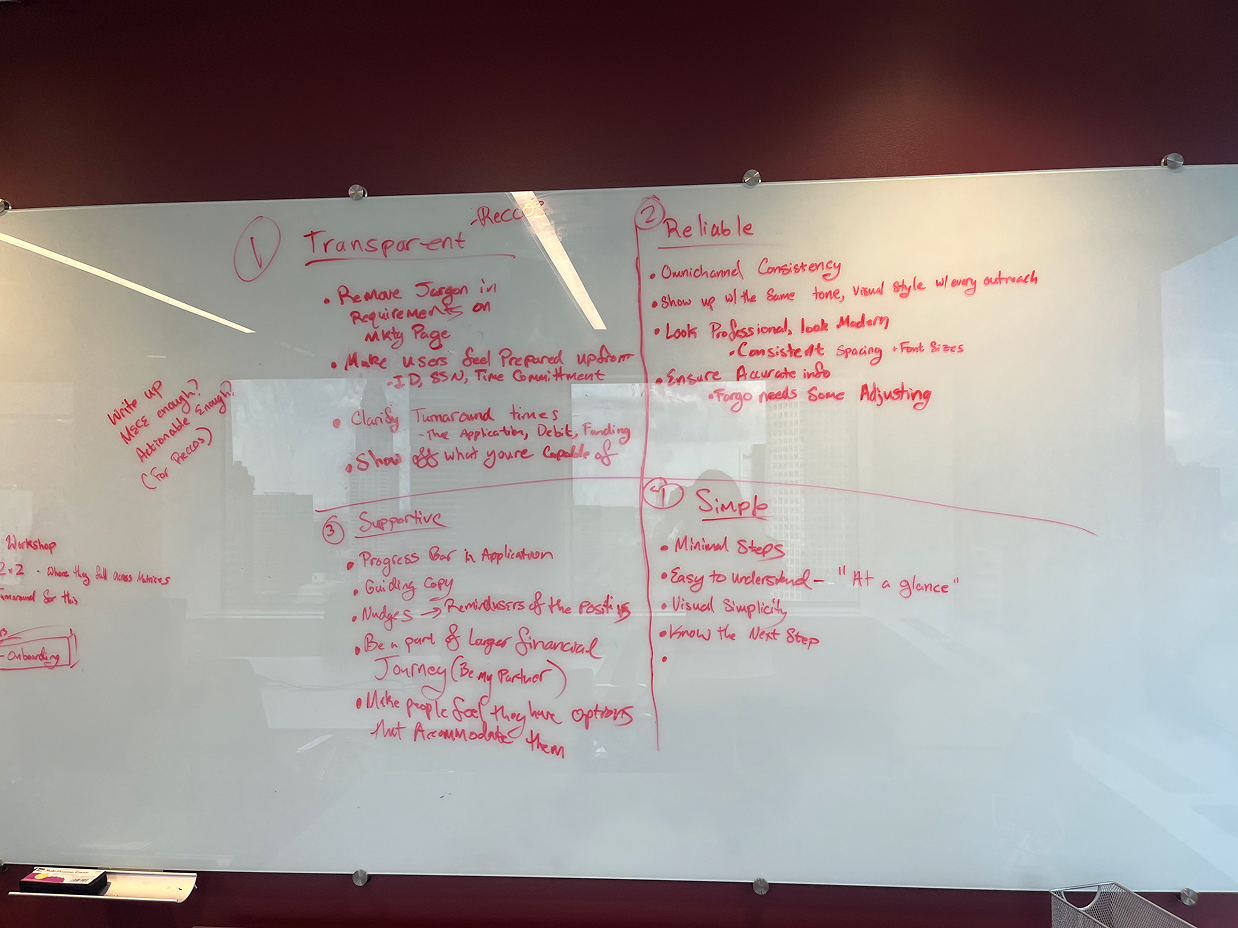 -Reccos
1
Transparent
• Remove Jargon in
Requirements on
Mktg Page
• Make users feel Prepared upfront
- ID, SSN, Time Committment
• Clarify Turnaround times
- The Application, Debit, Funding
• Show off what youre Capable of
2
Reliable
• Omnichannel Consistency
• Show up w/ the Same tone, Visual Style w/ every outreach
• Look Professional, look Modern
• Consistent Spacing + Font Sizes
• Ensure Accurate info
• Fargo needs Some Adjusting
3
Supportive
• Progress Bar in Application
• Guiding Copy
• Nudges → Remind users of the Positives
• Be a part of Larger financial
Journey (Be my Partner)
• Make people feel they have options
that Accommodate them
4
Simple
• Minimal Steps
• Easy to understand - "At a glance"
• Visual Simplicity
• Know the Next Step
•
Write up
MECE enough?
Actionable Enough?
(For Reccos)
Workshop
2x2 - Where they fall across Matrices
for this
- Onboarding